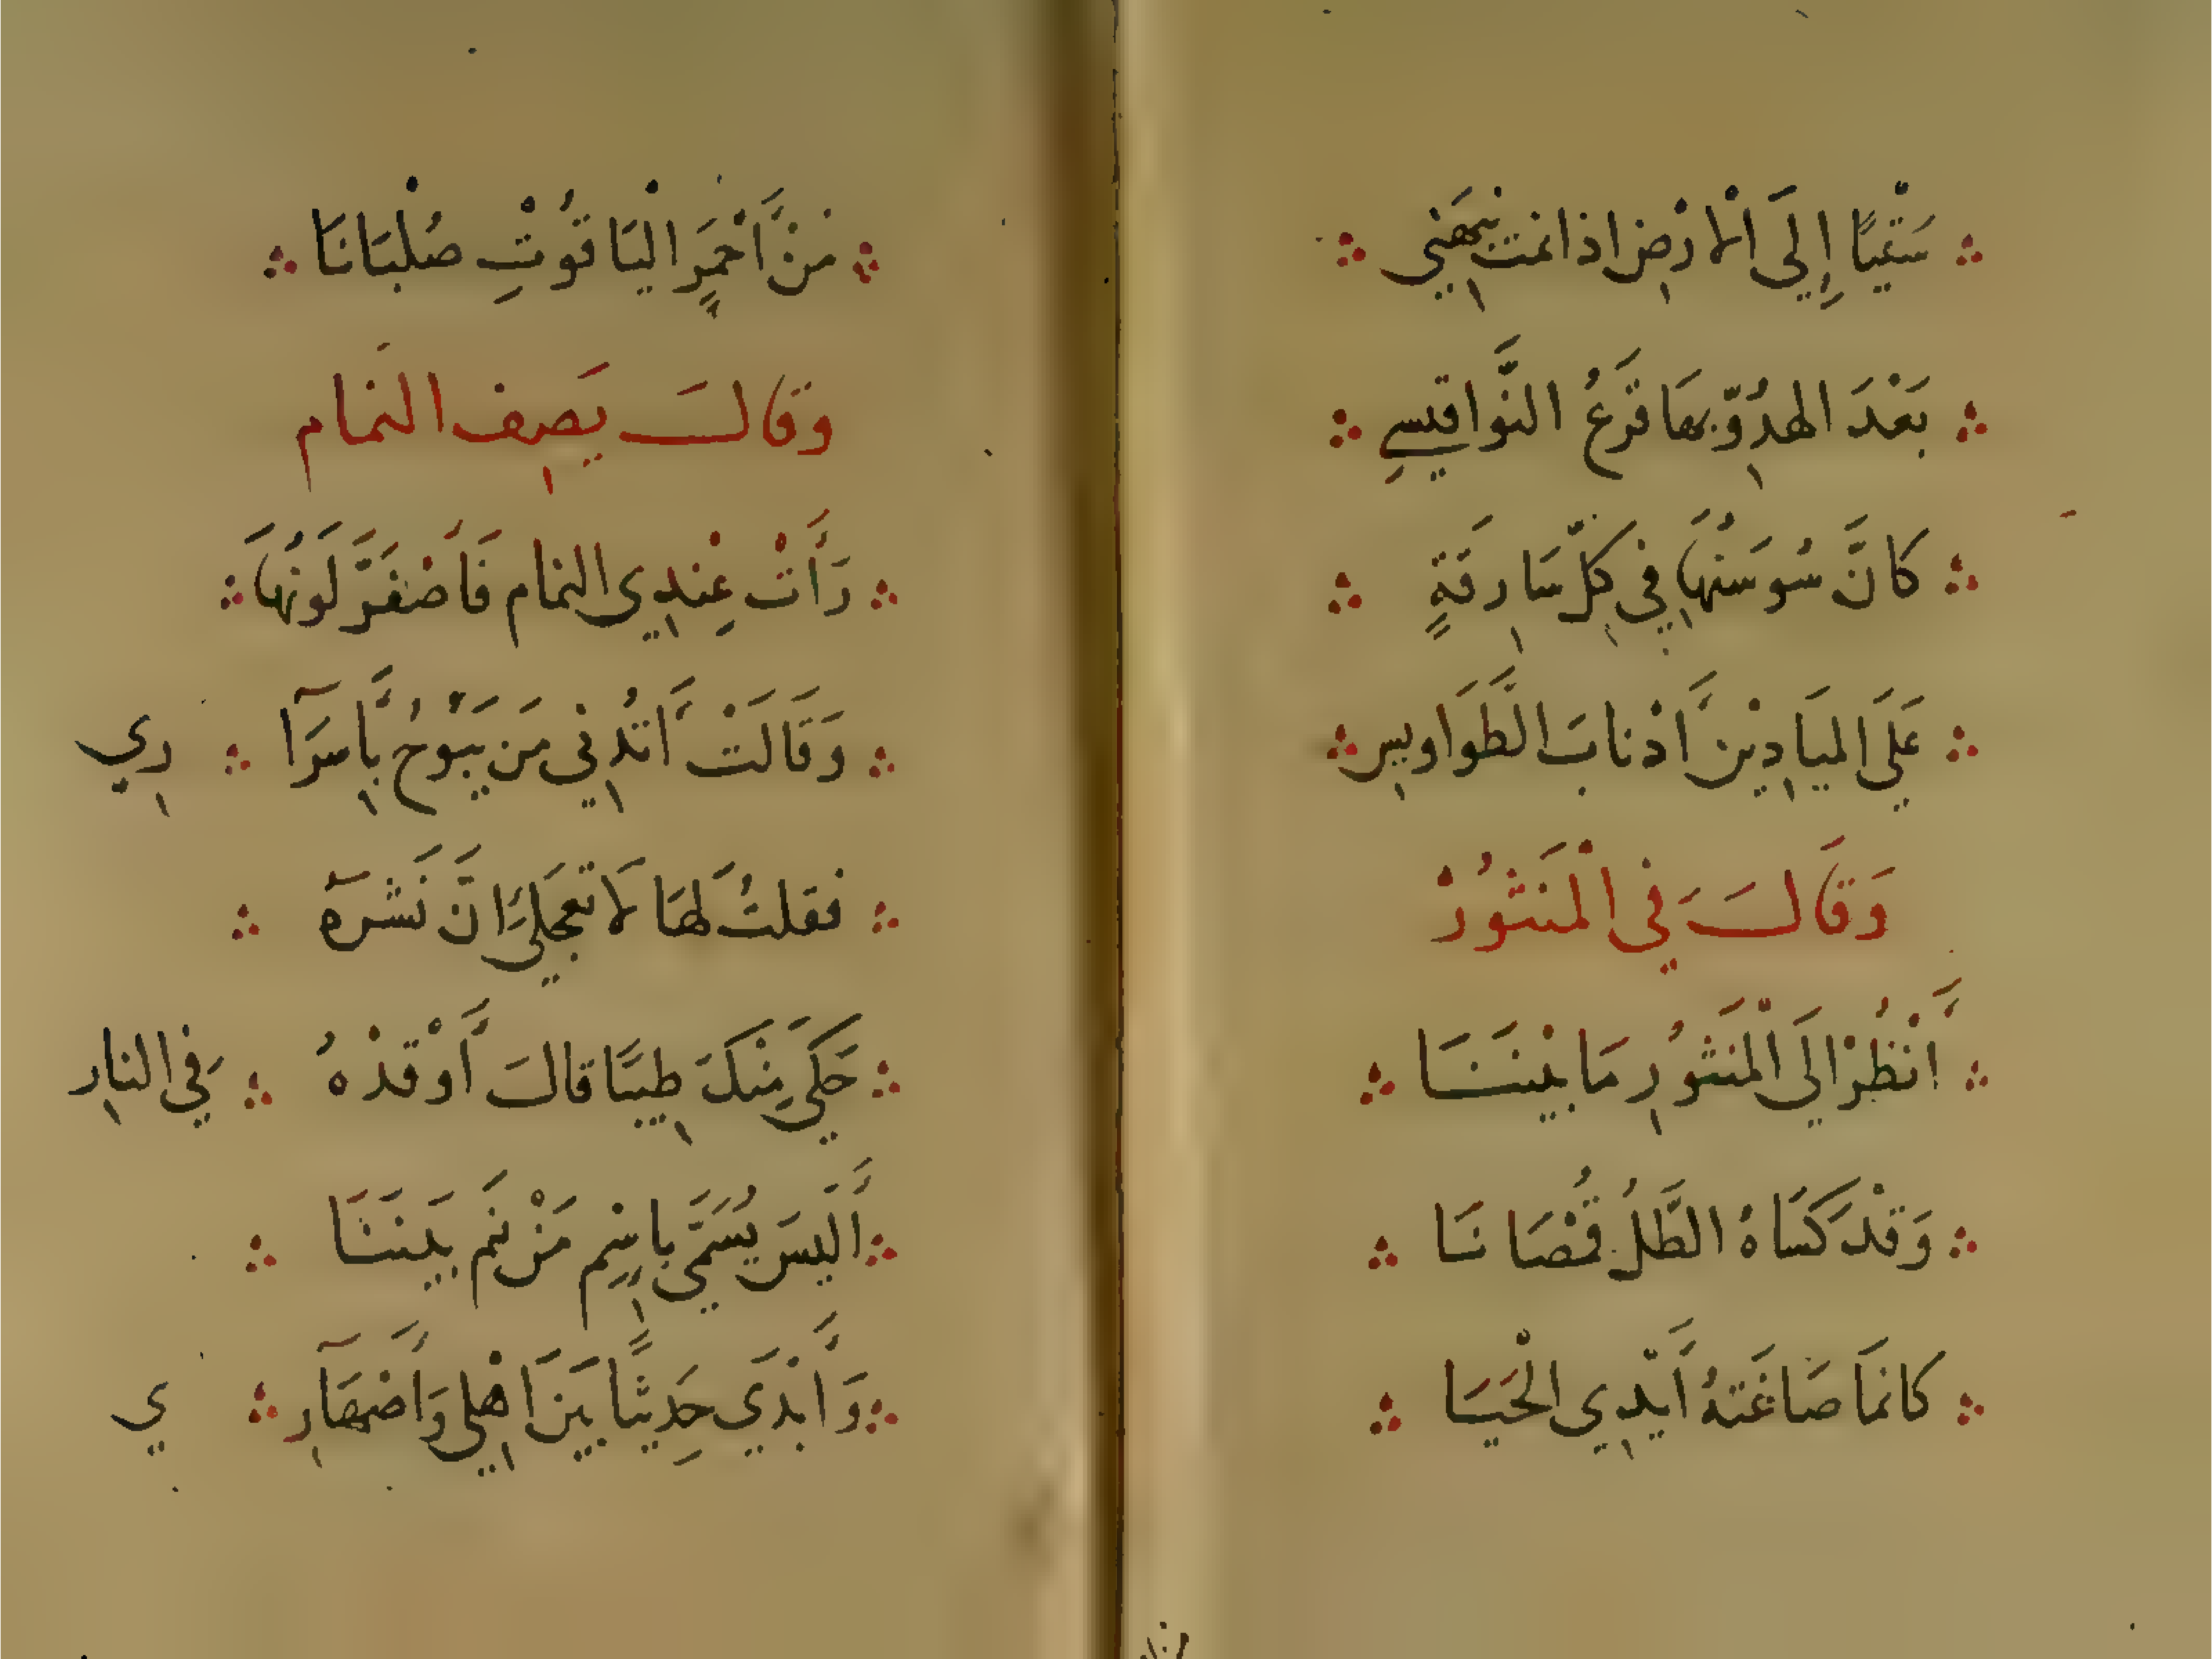 سَقْيًا إِلَى الْارْضِ اذا نمت نبهَنِي
بَعْدَ الهدُوِّ بهَا قَرْعُ النَّوَاقيسِ
كانَّ سُوسَنُهَا فِي كلِّ سَارِقَةٍ
عَلَى الميَادِيْنِ أَذْنابَ الطَّوَاويِسِ
وَقَالَ فِي الْمَنثُورْ
أُنْظُرْ الَى الْمَنثُورِ مَا بَيْنَنَا
وَقَدْ كَسَاهُ الطَّلُّ قُمْصَانَا
كانمَا صَاغَتهُ أَيْدِي الْحَيَا
مَنْ أَحْمَرِ الْيَاقُوْتِ صُلْبَانَا
وَقَالَ يَصِف النمام
رَأَتْ عِنْدِي النمام فَاصْفَرَّ لَونُهَا
وَقَالَتْ أَتُدْنِي مَن يَبُوْحُ بِأَسرَارِي
فقلتُ لهَا لَا تعجَلي انَّ نَشْرَهُ
حَكَى مِنْكَ طِيبًا قالَ أَوْقدْهُ فِي النارِ
أَلَيسَ يُسَمَّى باسْمِ مَنْ نَم بَينَنَا
وَأَبْدَي حَدِيثًا بَيْنَ اهْلِي وَأَصْهَارِي